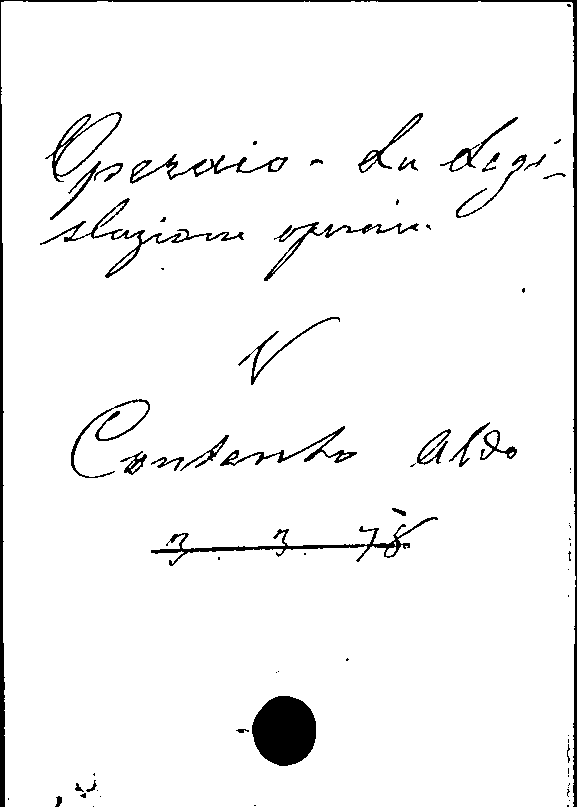 Operaio - La Legi-
slazione operaia.
V
Contento Aldo
3 3 78